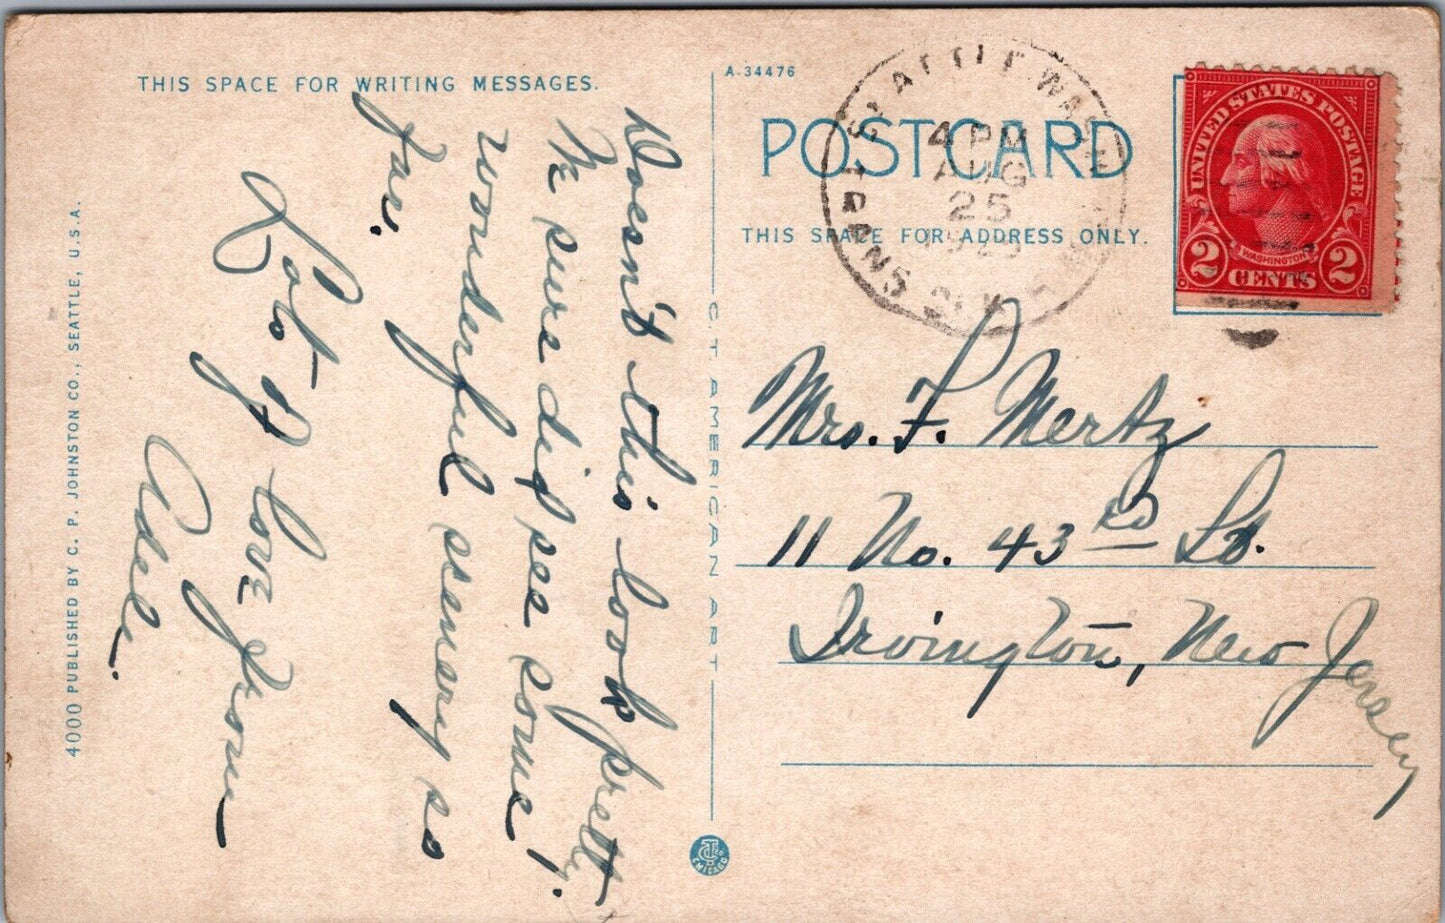 THIS SPACE FOR WRITING MESSAGES.
Doesn't this look pretty.
We sure did see some
wonderful scenery so
far.
Lots of love from
Adele.
4000 PUBLISHED BY C. P. JOHNSTON CO., SEATTLE, U.S.A.
C. T. AMERICAN ART
A-34476
POST CARD
THIS SPACE FOR ADDRESS ONLY.
SEATTLE WASH
4 PM
AUG
25
TRANS CLK
UNITED STATES POSTAGE
WASHINGTON
2 CENTS 2
Mrs. F. Mertz
11 No. 43 RD St.
Irvington, New Jersey
CHICAGO